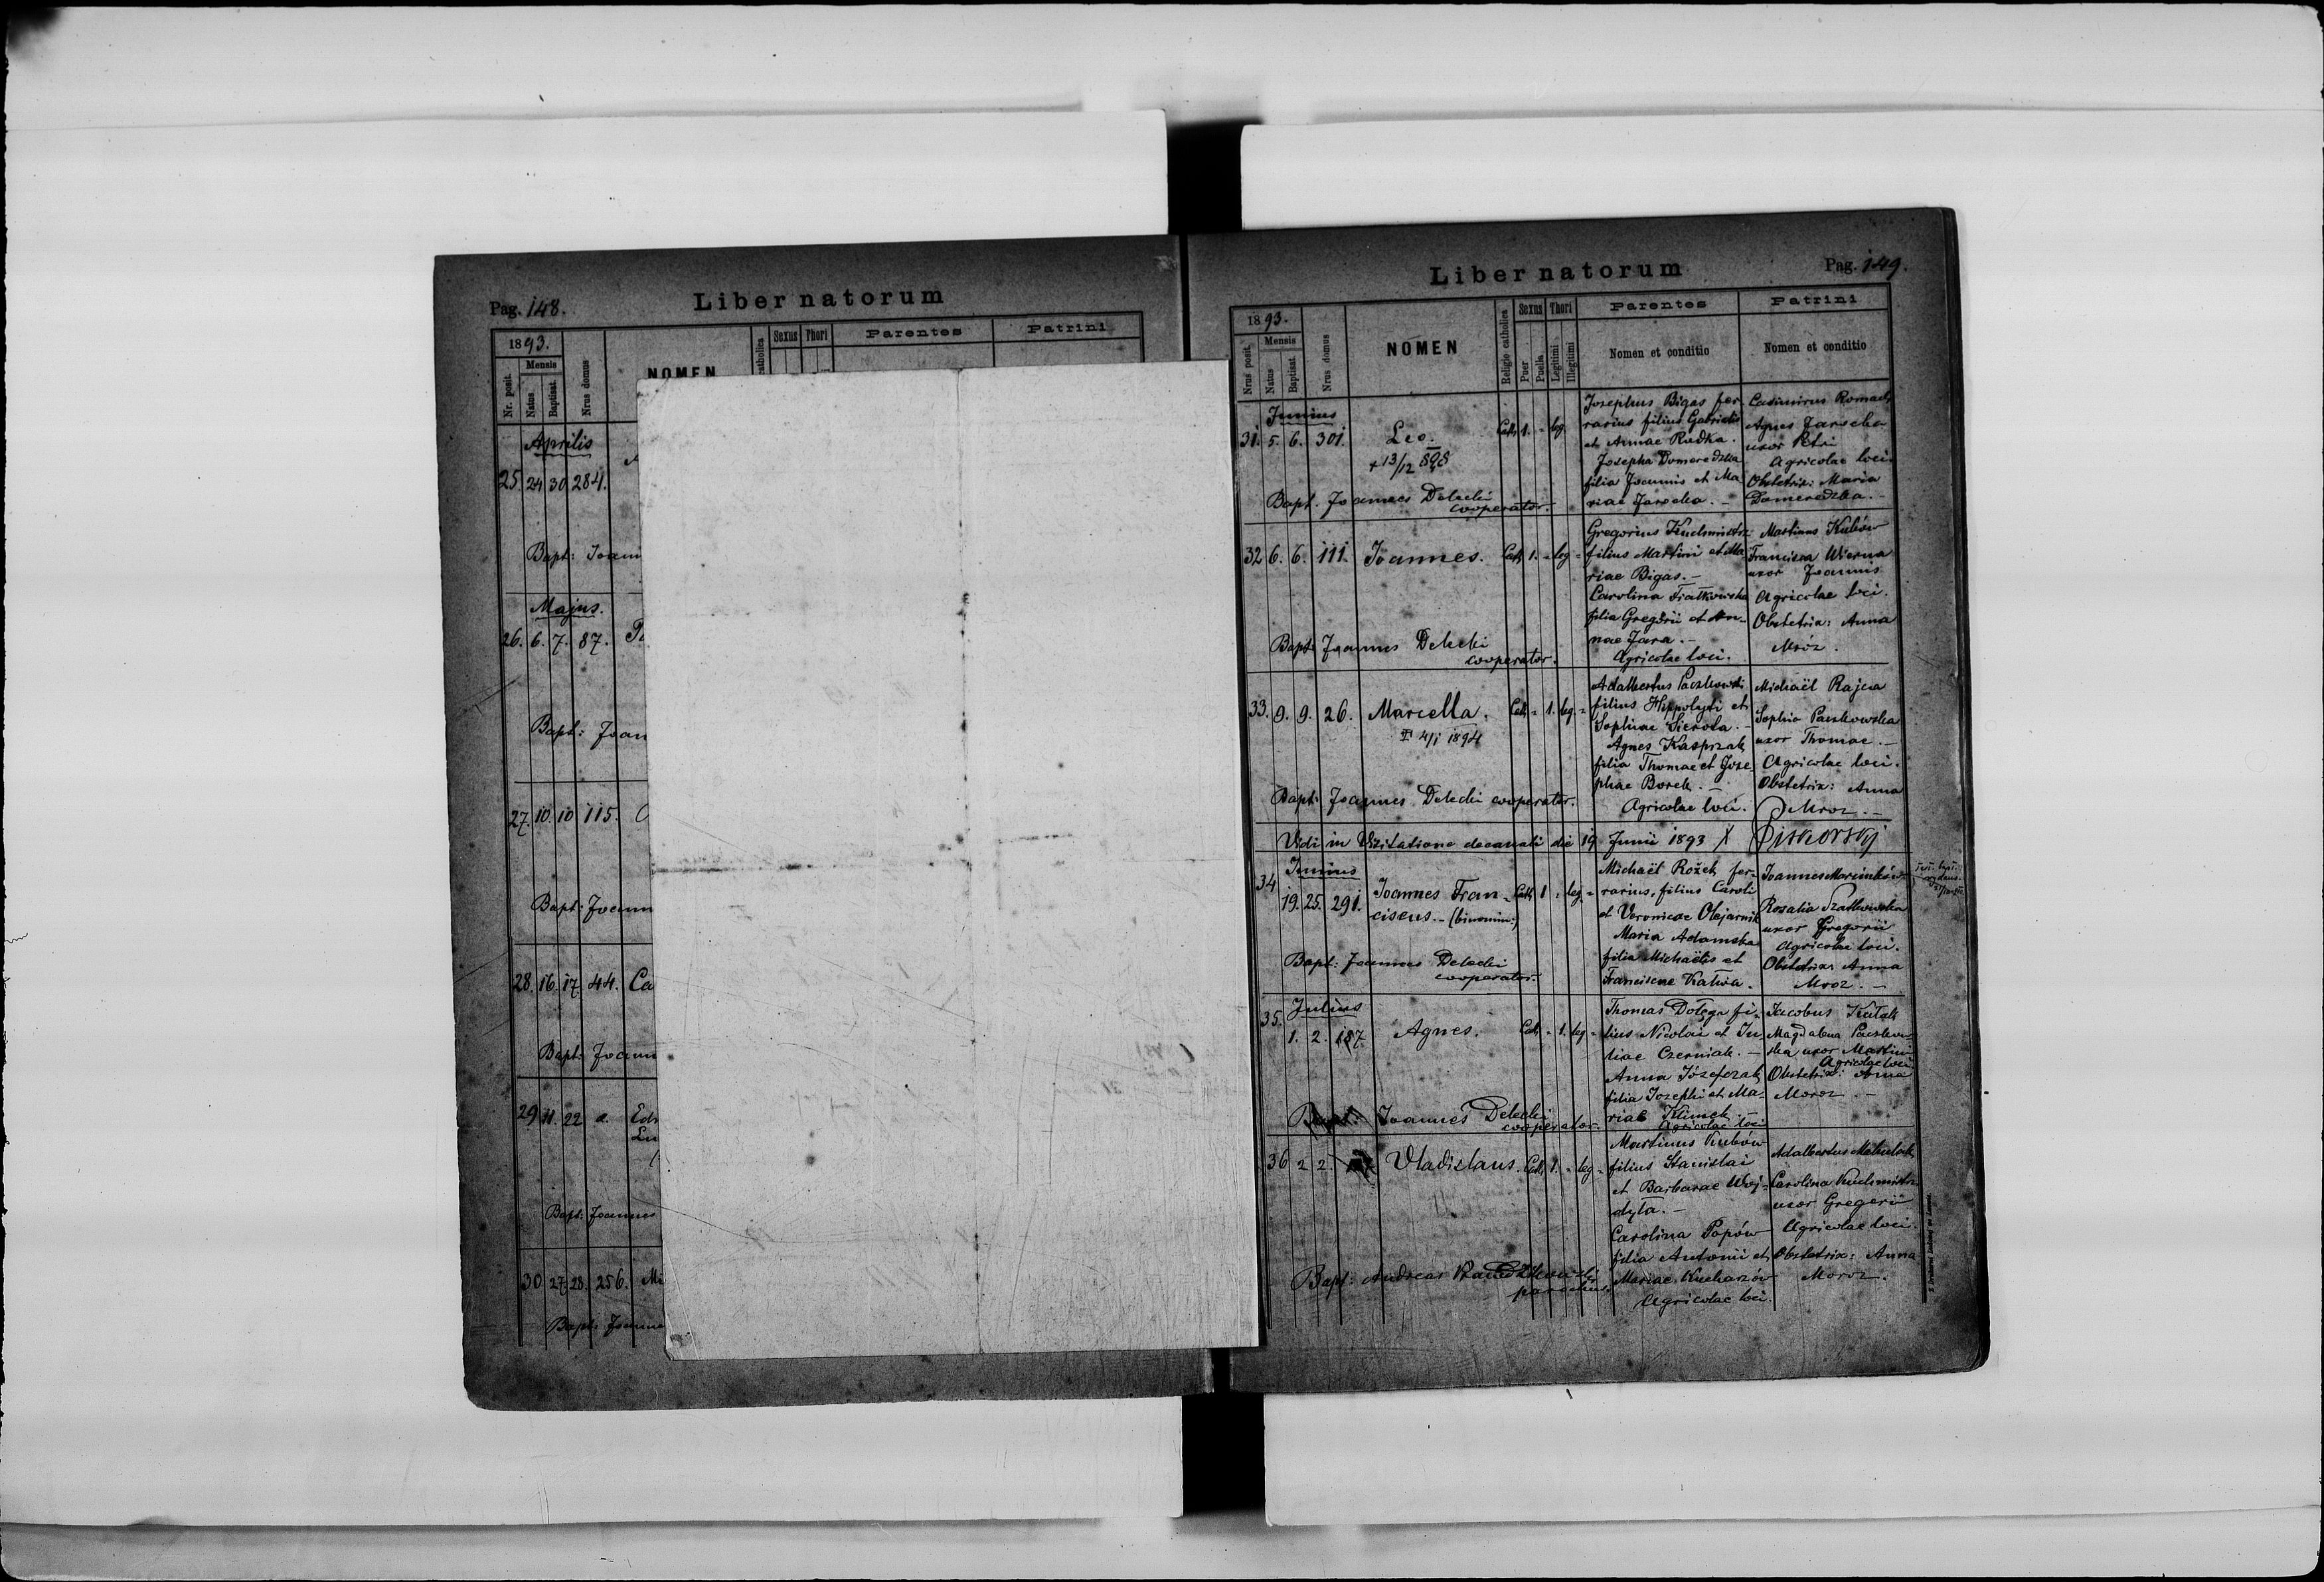 Pag. 148.
Liber natorum
1893.
Nr. posit.
Mensis
Natus
Baptisat.
Nrus domus
NOMEN
Sexus
Thori
Parentes
Patrini
Aprilis
25. 24 30 284.
Bapt: Joann
Majus.
26. 6. 7. 87.
Bapt: Joan
27. 10. 10 115.
Bapt: Joann
28. 16. 17. 44. Ca
Bapt: Joann
29 22 a.
Bapt: Joannes
30 27. 28. 256. Mi
Bapt: Joanne
Liber natorum
Pag. 149.
1893.
Nrus posit.
Mensis
Natus
Baptisat.
Nrus domus
NOMEN
Religio catholica
Sexus
Puer
Puella
Thori
Legitimi
Illegitimi
Parentes
Nomen et conditio
Patrini
Nomen et conditio
Junius
31. 5. 6. 301. Leo. Cath. 1. - leg.
+ 13/12 898
Bapt. Joannes Delecki
cooperator.
Josephus Bigas fer-
rarius filius Gabrielis
et Annae Rudka.
Josepha Domeredzka
filia Joannis et Ma
riae Jarocka. -
Casimirus Romach
Agnes Jarocka
uxor Petri
Agricolae loci.
Obstetrix: Maria
Domeredzka. -
32 6. 6. 111. Joannes. Cath 1. - leg -
Bapt: Joannes Delecki
cooperator.
Gregorius Kuchmistrz
filius Martini et Ma
riae Bigas. -
Carolina Fiałkowska
filia Gregorii et An-
nae Jara. -
Agricolae loci.
Martinus Kubów
Francisca Wierna
uxor Joannis
Agricolae loci.
Obstetrix: Anna
Mróz.
33. 9. 9. 26. Marcella. Cath - 1. leg. -
4/1 1894
Bapt: Joannes Delecki cooperator.
Adalbertus Paszkowski
filius Hippolyti et
Sophiae Sierota. -
Agnes Kasprzak
filia Thomae et Jose-
phae Borek. -
Agricolae loci.
Michaël Rajca
Sophia Paszkowska
uxor Thomae. -
Agricolae loci.
Obstetrix: Anna
Mroz. -
Vidi in Visitatione decanali die 19 Junii 1893 X Piskorskj
Junius
34 19. 25. 291. Joannes Fran- Cath 1 - leg -
ciscus. - (binomin:)
Bapt: Joannes Delecki
cooperator.
Michaël Rożek fer-
rarius, filius Caroli
et Veronicae Olejarnik
Maria Adamska
filia Michaëlis et
Franciscae Kaliva.
Joannes Marcinków
Rosalia Szatkowska
uxor Gregorii
Agricolae loci.
Obstetrix Anna
Mroz. -
Julius
35. 1. 2. 187. Agnes. Cath - 1. leg -
Bapt: Joannes Delecki
cooperator.
Thomas Dołęga fi-
lius Nicolai et Ju-
liae Czerniak. -
Anna Józefczak
filia Josephi et Ma-
riae Klimek. -
Agricolae loci
Jacobus Kułak
Magdalena Paszkow-
ska uxor Martini
Agricolae loci
Obstetrix: Anna
Moroz -
36 2 2. Vladislaus. Cath 1. - leg -
Bapt: Andreas
parochus.
Martinus Kubów
filius Stanislai
et Barbarae Woj-
dyła. -
Carolina Popów
filia Antonii et
Mariae Kucharzów
Agricolae loci.
Adalbertus Mikulak
Carolina Kuchmistrz
uxor Gregorii
Agricolae loci.
Obstetrix: Anna
Moroz.